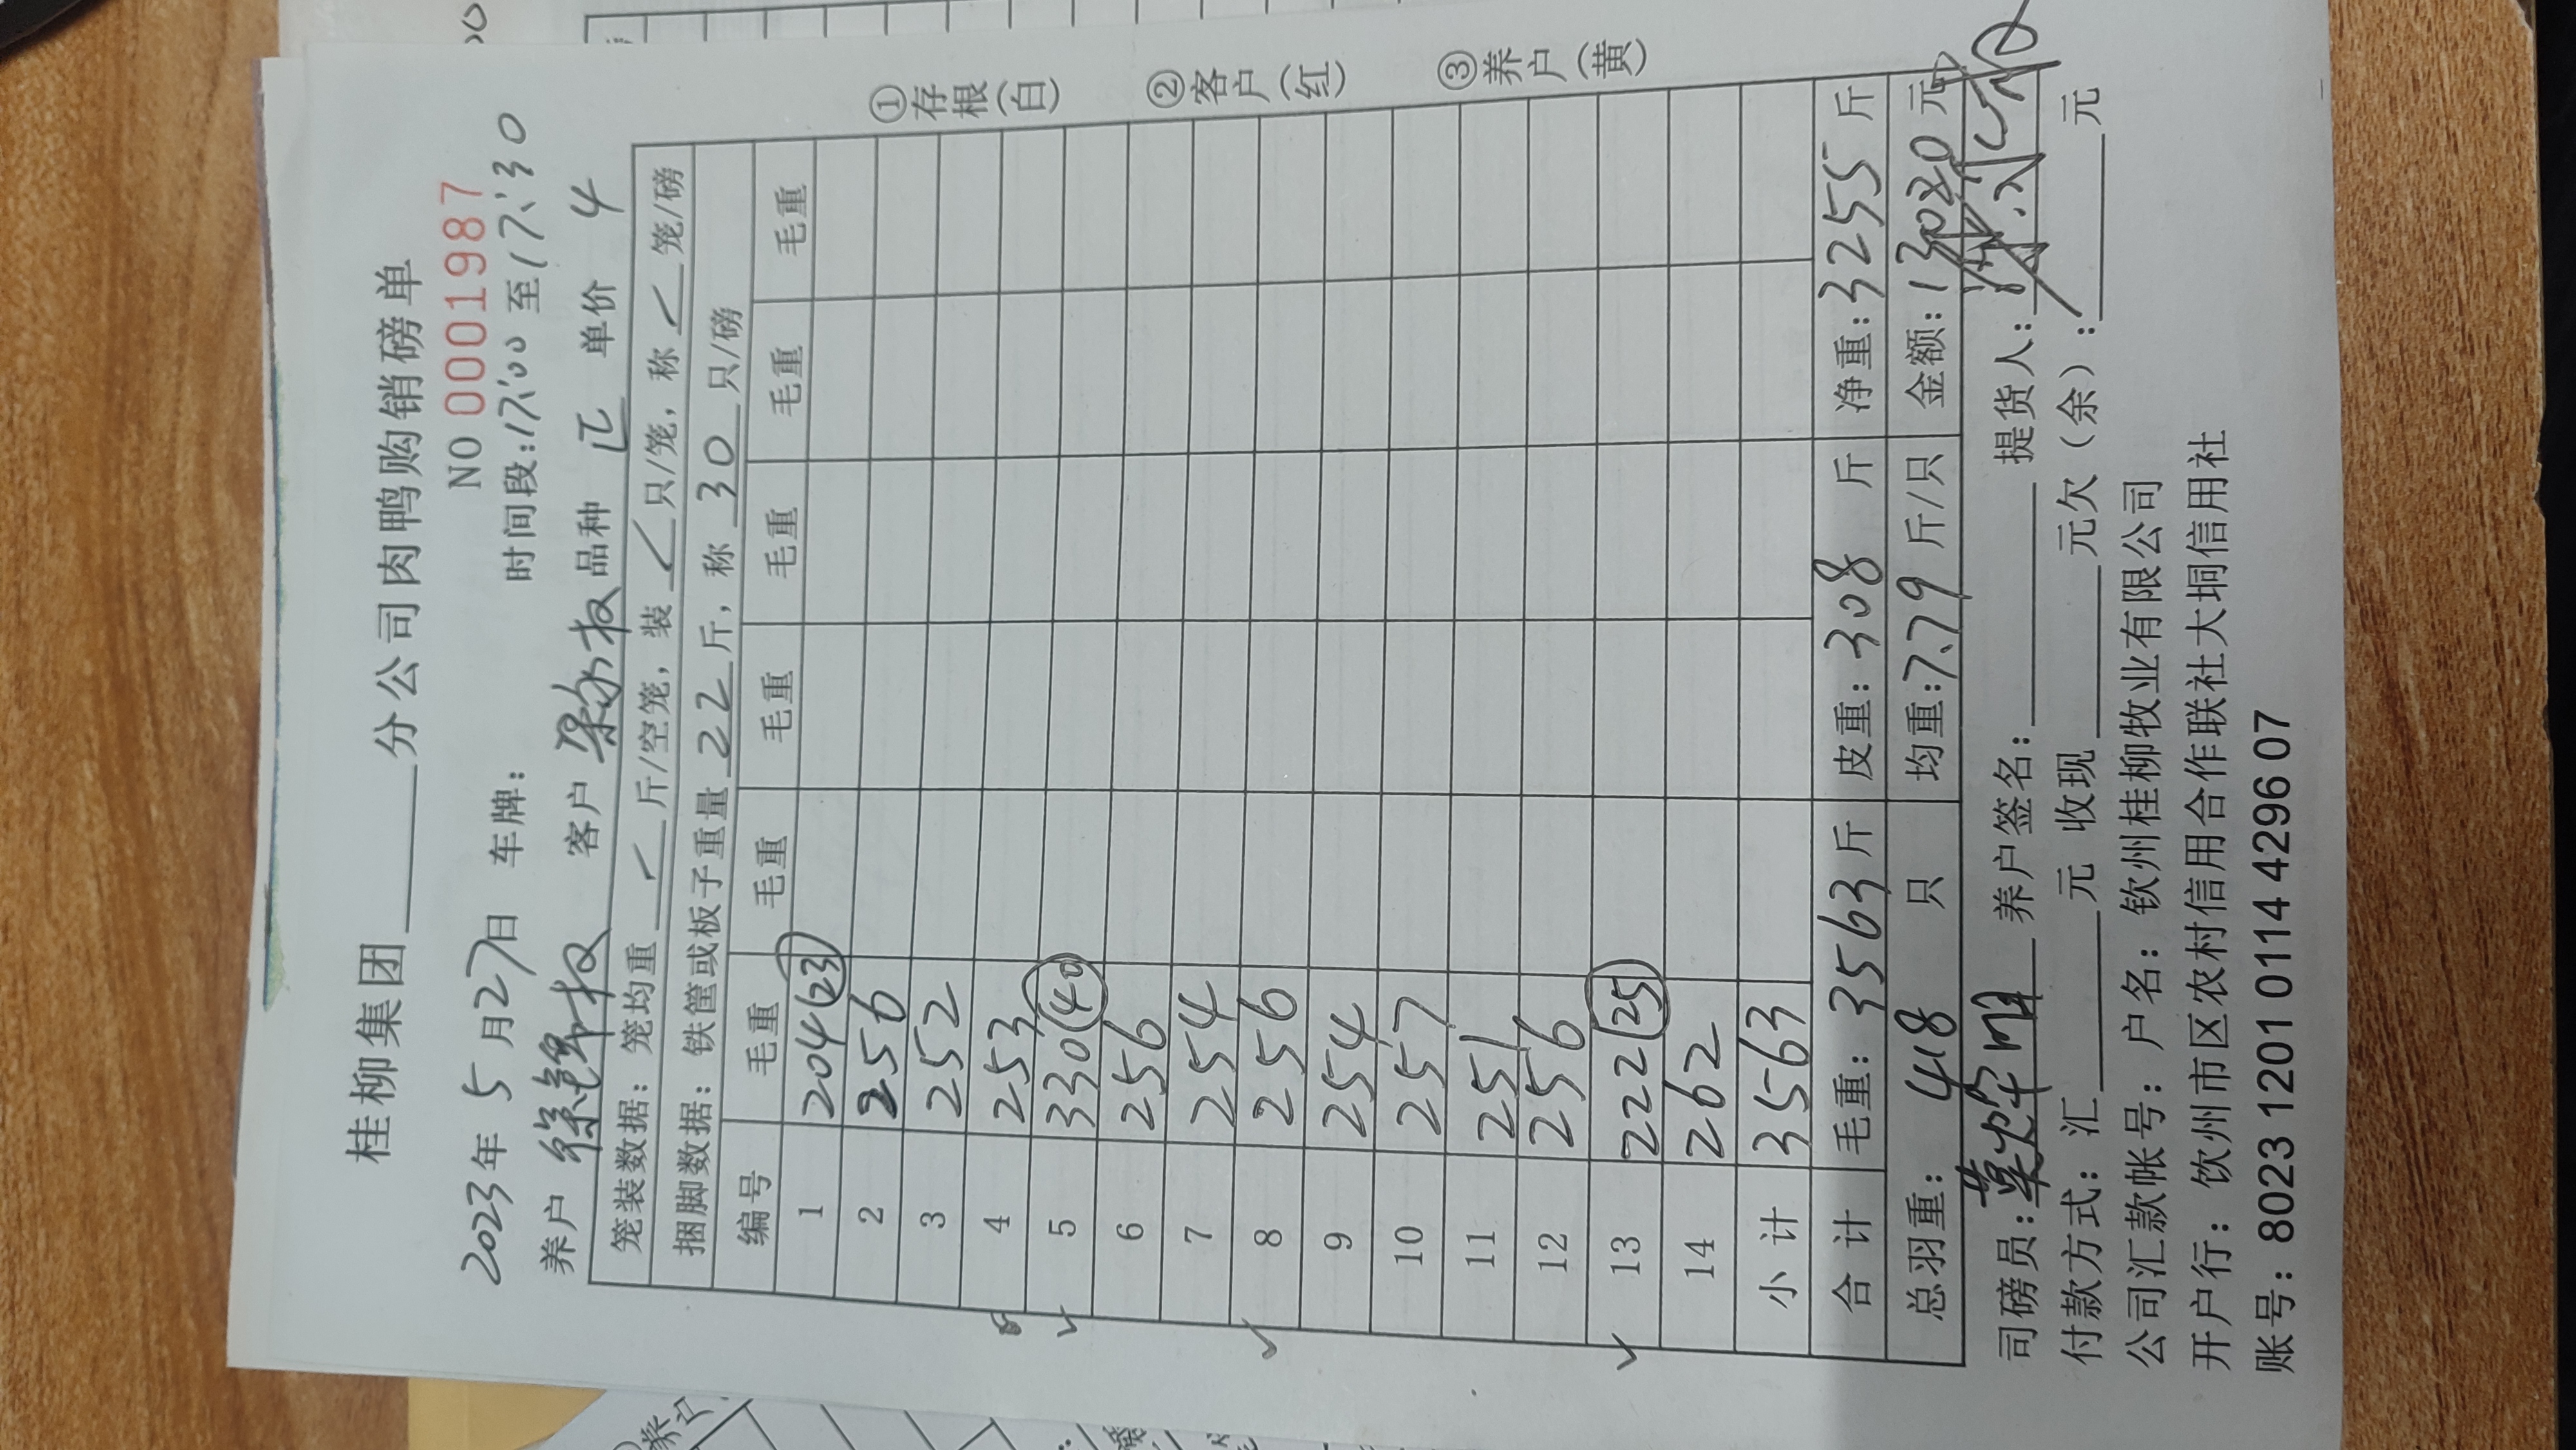 桂柳集团______分公司肉鸭购销磅单
NO 0001987
2023年 5月27日 车牌: 时间段:17:00至17:30
养户 客户 权 品种 正 单价 4
笼装数据: 笼均重 / 斤/空笼, 装 / 只/笼, 称 / 笼/磅
捆脚数据: 铁筐或板子重量 22 斤, 称 30 只/磅
编号 毛重 毛重 毛重 毛重 毛重 毛重
1 204(23)
2 256
3 252
4 253
5 330(40)
6 256
7 254
8 256
9 254
10 257
11 251
12 256
13 222(25)
14 262
小计 3563
合计 毛重: 3563斤 皮重: 308 斤 净重: 3255 斤
总羽重: 418 只 均重: 7.79 斤/只 金额: 13020元
司磅员: 养户签名: 提货人:
付款方式: 汇______元 收现______元欠(余):______元
公司汇款帐号: 户名: 钦州桂柳牧业有限公司
开户行: 钦州市区农村信用合作联社大垌信用社
账号: 8023 1201 0114 4296 07
①存根(白) ②客户(红) ③养户(黄)